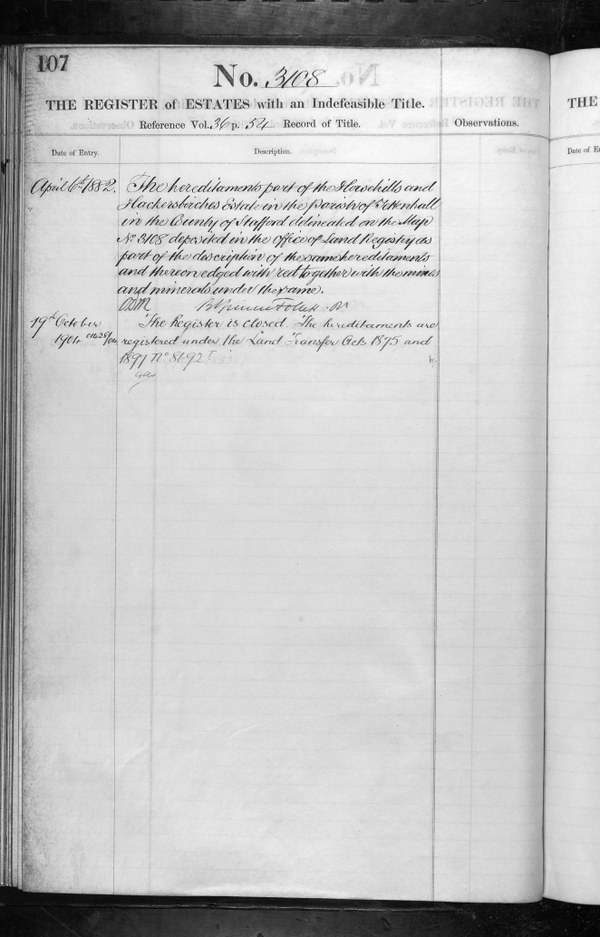 107
No. 3108
THE REGISTER of ESTATES with an Indefeasible Title.
Reference Vol. 36 p. 54 Record of Title.
Observations.
Date of Entry.
Description.
April 6th 1882.
The hereditaments part of the Howehills and
Hackersbirches Estate in the Parish of Tettenhall
in the County of Stafford delineated on the Map
No 3108 deposited in the Office of Land Registry as
part of the description of the same hereditaments
and thereon edged with red together with the mines
and minerals under the same.
19th October
1904
The Register is closed. The hereditaments are
registered under the Land Transfer Acts 1875 and
1897 No 8192
THE
Date of E